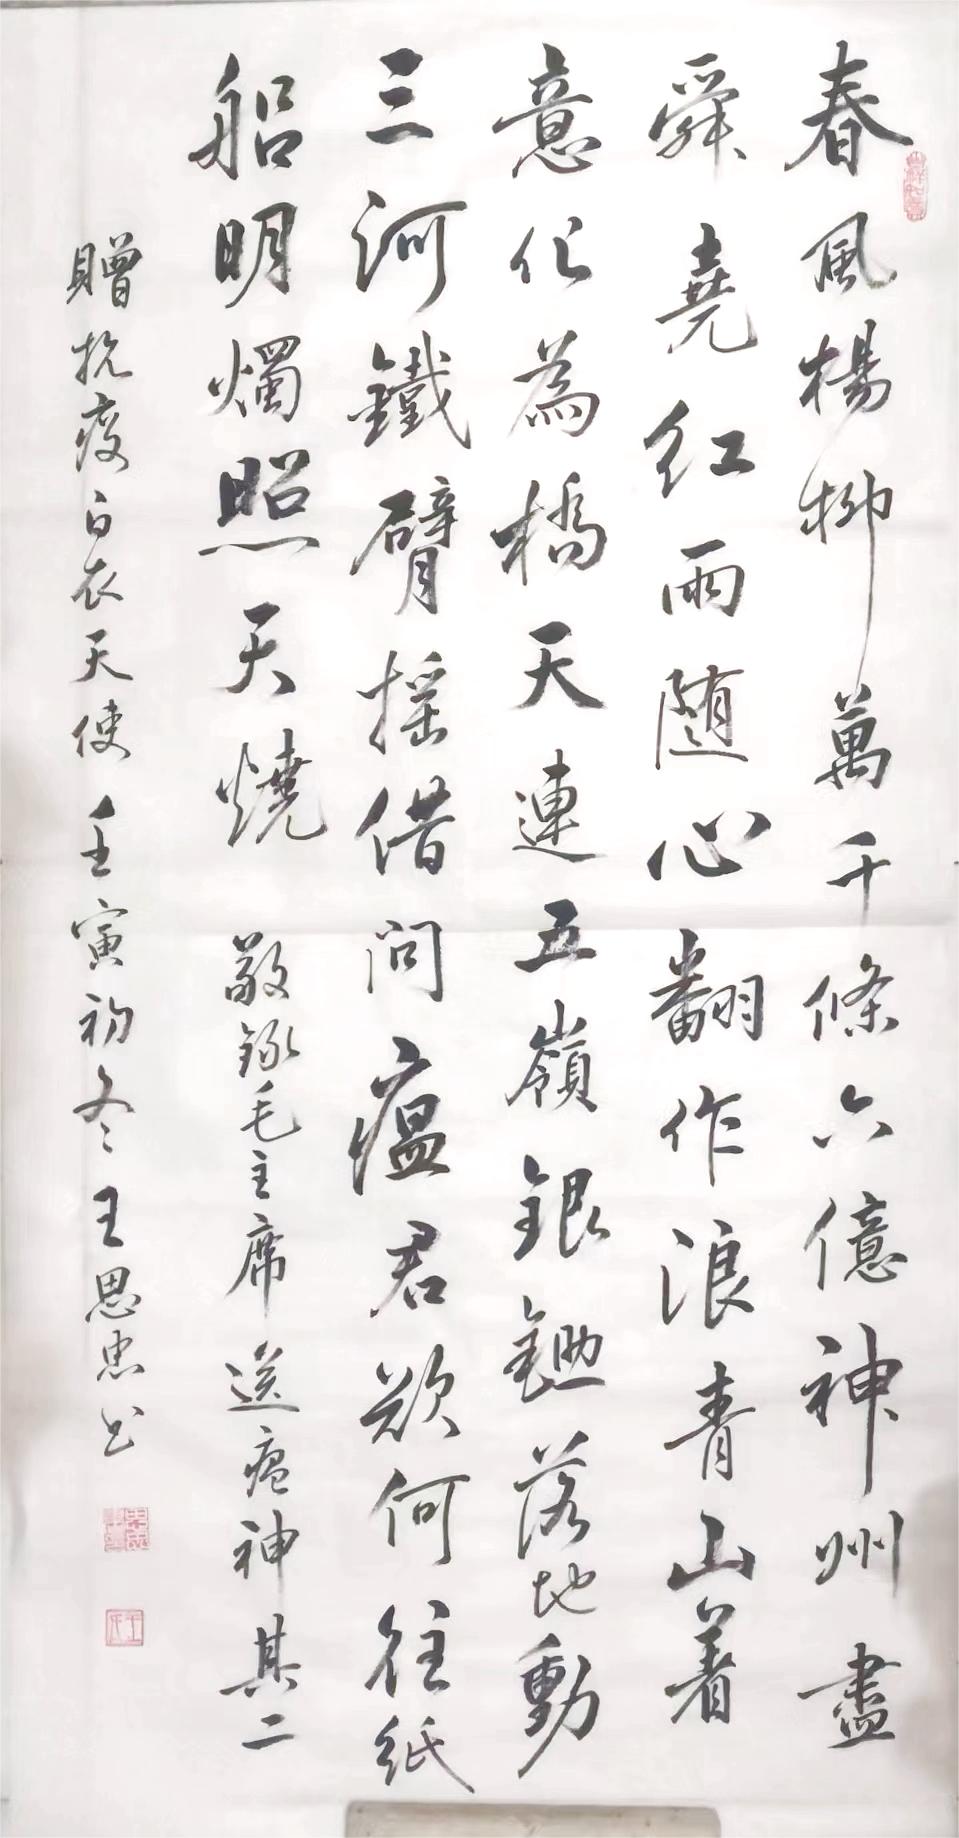 春風楊柳萬千條六億神州盡
舜堯紅雨随心翻作浪青山着
意化為橋天連五嶺銀鋤落地動
三河鐵臂摇借問瘟君欲何往紙
船明燭照天燒 敬錄毛主席送瘟神其二
贈抗疫白衣天使 壬寅初冬 王思忠书